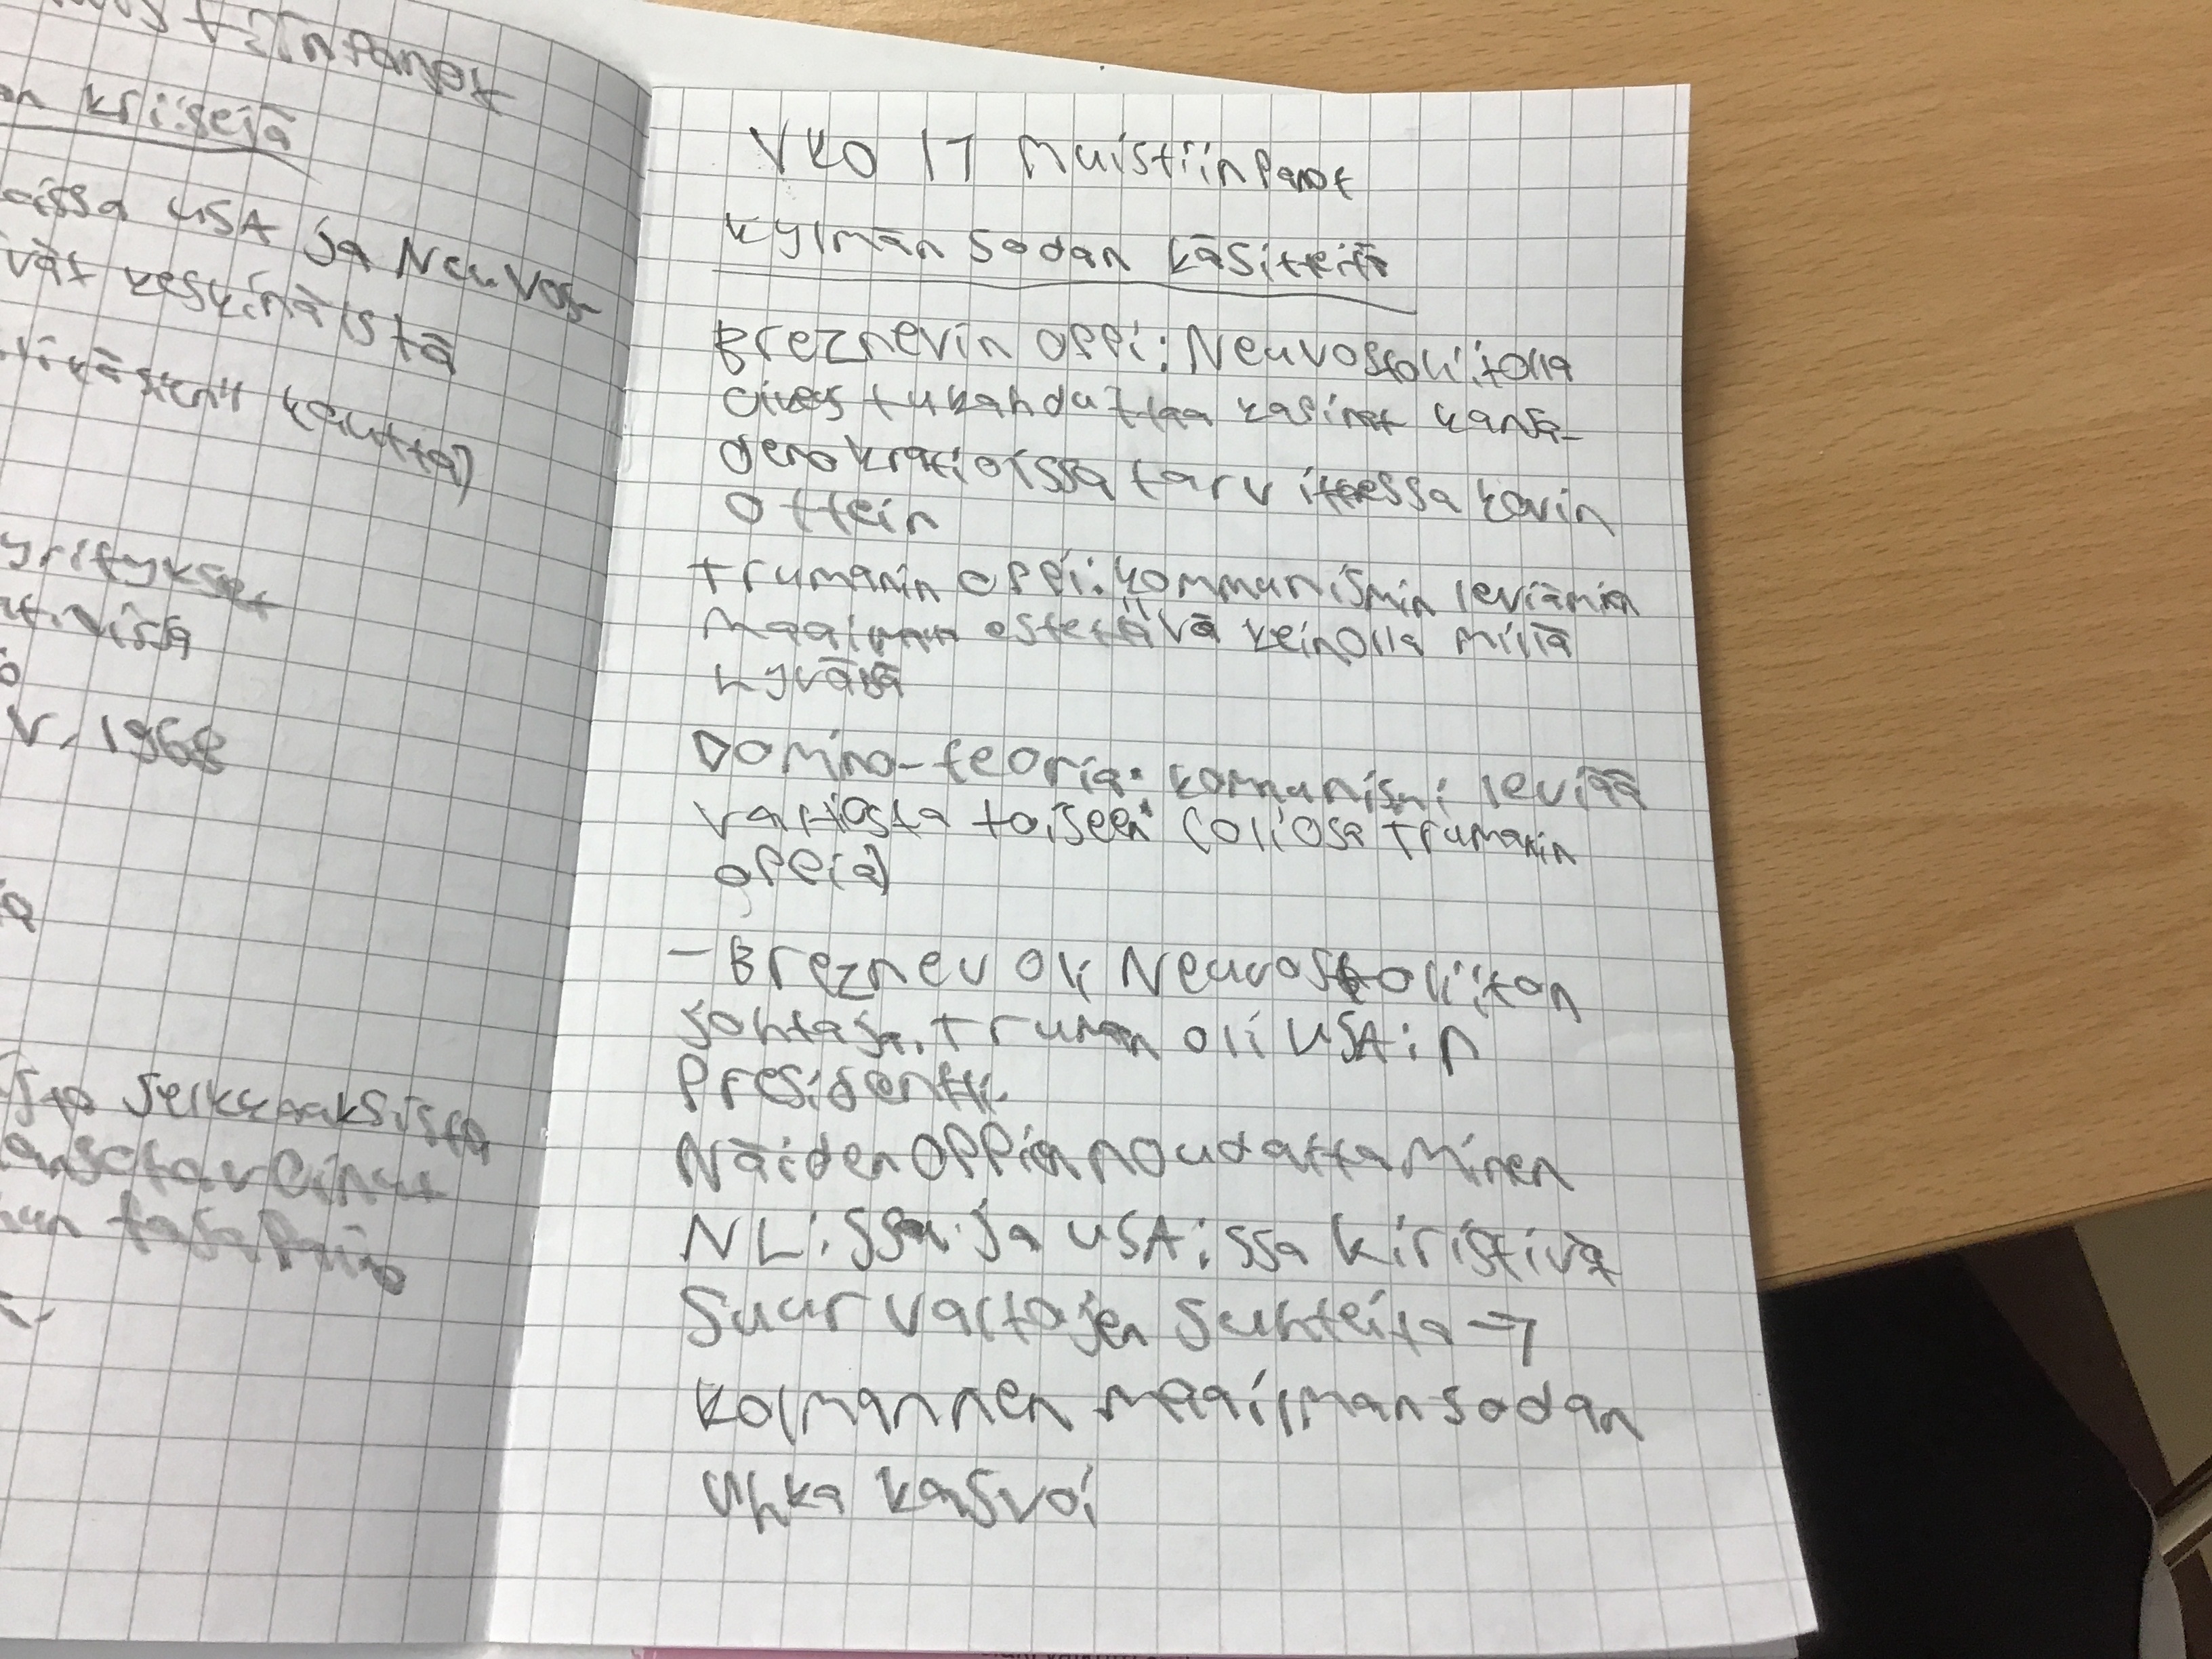 tiinpanot
on kriisejä
oissa USA ja Neuvos-
ivät keskinäistä
käsien" kautta)
yritykset
V. 1968
selkkauksista
tasapaino
VKO 17 Muistiinpanot
kylmän sodan käsitteitä
Breznevin oppi: Neuvostoliitolla
oikeus tukahduttaa kapinat kansa-
demokratioissa tarvittaessa kovin
ottein
Trumanin oppi: kommunismin leviäminen
maailman estettävä keinolla millä
hyvänsä
Domino-teoria: kommunismi leviää
valtiosta toiseen (oli osa Trumanin
oppia)
- Breznev oli Neuvostoliiton
johtaja. Truman oli USA:n
Presidentti.
Näiden oppien noudattaminen
NL:ssa ja USA:ssa kiristivät
Suurvaltojen suhteita →
kolmannen maailmansodan
uhka kasvoi